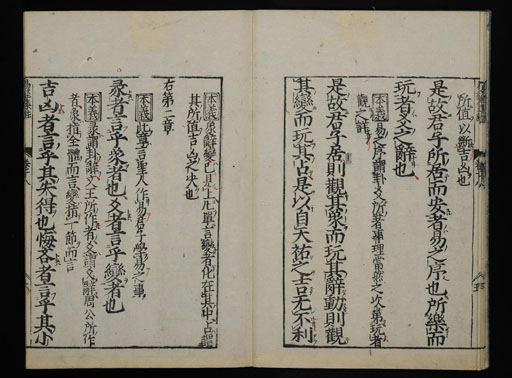 所值以斷吉凶也
是故君子所居而安者易之序也所樂而
玩者爻之辭也
本義 易之序謂卦爻所著事理當然之次第玩者
觀之詳
是故君子居則觀其象而玩其辭動則觀
其變而玩其占是以自天祐之吉无不利
本義 象辭變已見上凡單言變者化在其中占謂
其所值吉凶之決也
右第二章
本義 此章言聖人作易君子學易之事
彖者言乎象者也爻者言乎變者也
本義 彖謂卦辭文王所作者爻謂爻辭周公所作
者象指全體而言變指一節而言
吉凶者言乎其失得也悔吝者言乎其小